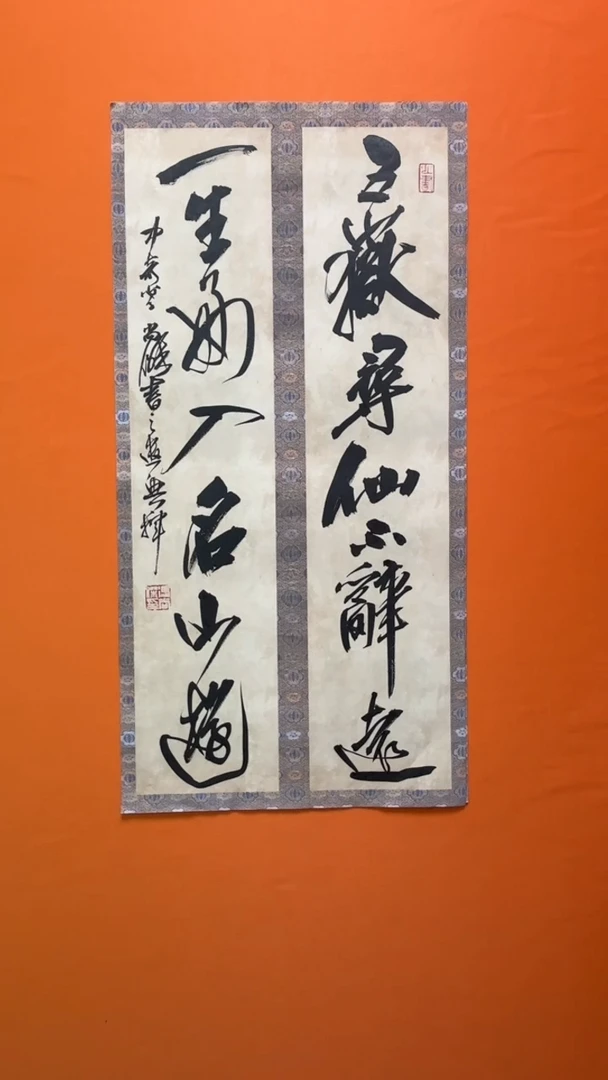 五嶽尋仙不辭遠
一生好入名山遊
書之